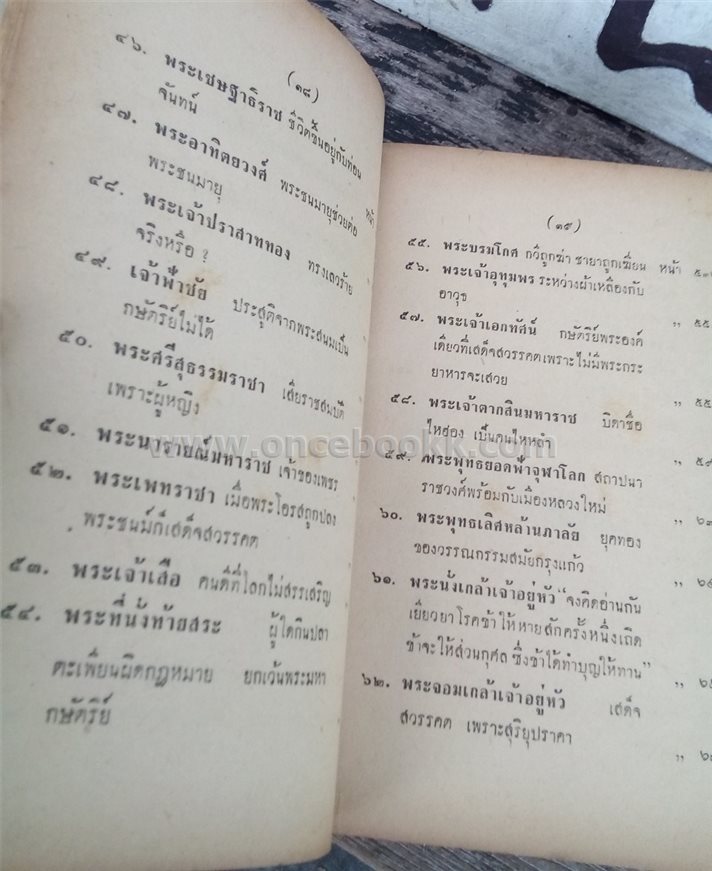 (๑๘)
๔๖. พระเชษฐาธิราช ชีวิตขึ้นอยู่กับท่อน หน้า
จันทน์
๔๗. พระอาทิตยวงศ์ พระชนมายุช่วยต่อ
พระชนมายุ
๔๘. พระเจ้าปราสาททอง ทรงเลวร้าย
จริงหรือ ?
๔๙. เจ้าฟ้าชัย ประสูติจากพระสนมเป็น
กษัตริย์ไม่ได้
๕๐. พระศรีสุธรรมราชา เสียราชสมบัติ
เพราะผู้หญิง
๕๑. พระนารายณ์มหาราช เจ้าของเพชร
๕๒. พระเพทราชา เมื่อพระโอรสถูกปลง
พระชนม์ก็เสด็จสวรรคต
๕๓. พระเจ้าเสือ คนดีที่โลกไม่สรรเสริญ
๕๔. พระที่นั่งท้ายสระ ผู้ใดกินปลา
ตะเพียนผิดกฎหมาย ยกเว้นพระมหา
กษัตริย์
(๑๙)
๕๕. พระบรมโกศ กวีถูกฆ่า ชายาถูกเฆี่ยน หน้า
๕๖. พระเจ้าอุทุมพร ระหว่างผ้าเหลืองกับ
อาวุธ ,,
๕๗. พระเจ้าเอกทัศน์ กษัตริย์พระองค์
เดียวที่เสด็จสวรรคตเพราะไม่มีพระกระ
ยาหารจะเสวย ,,
๕๘. พระเจ้าตากสินมหาราช บิดาชื่อ
ไหฮอง เป็นคนไหหลำ ,,
๕๙. พระพุทธยอดฟ้าจุฬาโลก สถาปนา
ราชวงศ์พร้อมกับเมืองหลวงใหม่ ,,
๖๐. พระพุทธเลิศหล้านภาลัย ยุคทอง
ของวรรณกรรมสมัยกรุงแก้ว ,,
๖๑. พระนั่งเกล้าเจ้าอยู่หัว "จงคิดอ่านกัน
เยียวยาโรคข้าให้หายสักครั้งหนึ่งเถิด
ข้าจะให้ส่วนกุศล ซึ่งข้าได้ทำบุญให้ทาน" ,,
๖๒. พระจอมเกล้าเจ้าอยู่หัว เสด็จ
สวรรคต เพราะสุริยุปราคา ,,
www.oncebookk.com